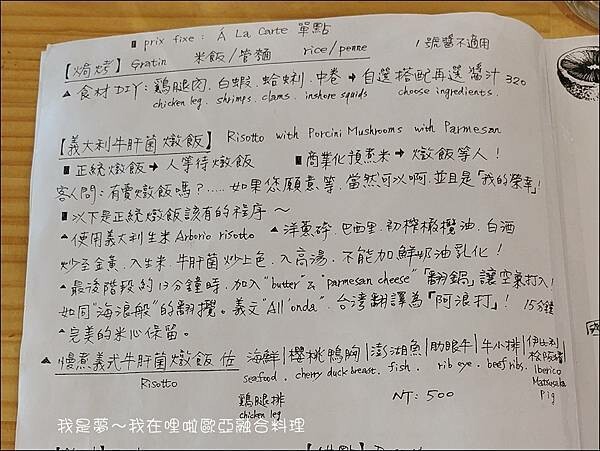 ■ prix fixe : Á La Carte 單點
【焗烤】Gratin 米飯/管麵 rice/penne 1號醬不適用
▲食材DIY:鷄腿肉.白蝦.蛤蜊.中卷→自選搭配再選醬汁 320
chicken leg. shrimps. clams. inshore squids choose ingredients.
【義大利牛肝菌燉飯】Risotto with Porcini Mushrooms with Parmesan
■正統燉飯→人等待燉飯 ■商業化預煮米→燉飯等人!
客人問:有賣燉飯嗎?......如果您願意等.當然可以啊.並且是「我的榮幸」!
■以下是正統燉飯該有的程序~
▲使用義大利生米Arborio risotto ▲洋蔥碎.巴西里.初榨橄欖油.白酒
炒至金黃.入生米.牛肝菌炒上色.入高湯.不能加鮮奶油乳化!
▲最後階段約13分鐘時.加入"butter & "parmesan cheese"「翻鍋」讓空氣打入!
如同"海浪般"的翻攪。義文"All'onda".台灣翻譯為「阿浪打」! 15分鐘
▲完美的米心保留。
▲慢煮義式牛肝菌燉飯 佐 海鮮|櫻桃鴨胸|澎湖魚|肋眼牛|牛小排|伊比利松阪豬
Risotto seafood. cherry duck breast. fish. rib eye. beef ribs. Iberico Matsusaka Pig
鷄腿排 NT: 500
chicken leg
我是夢~我在哩啦歐亞融合料理